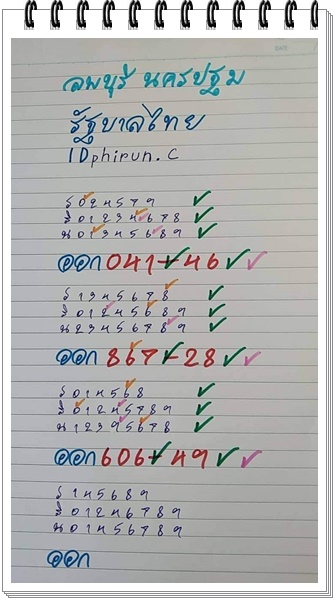 ลพบุรี นครปฐม
รัฐบาลไทย
IDphirun.c
ร 024579
สิ 01234678
น 01345689
ออก 041-46
ร 1345678
สิ 01245689
น 23456789
ออก 867-28
ร 014568
สิ 01245789
น 12395678
ออก 606-49
ร 145689
สิ 0124678
น 01456789
ออก